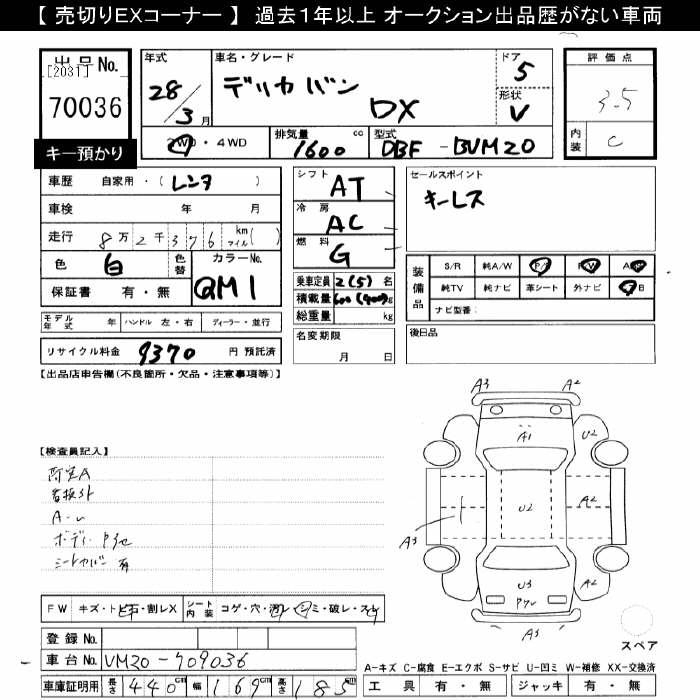 【 売切りEXコーナー 】 過去1年以上 オークション出品歴がない車両
出品No.
[2031]
70036
キー預かり
年式
28/3月
車名・グレード
デリカバン
DX
ドア
5
形状
V
2WD・4WD
排気量
1600cc
型式
DBF-BVM20
評価点
3.5
内装
C
車歴 自家用・(レンタ)
車検 年 月
走行 8万2千376km マイル( )
色 白 色替 カラーNo. QM1
保証書 有・無
モデル年式 年 ハンドル 左・右 ディーラー・並行
リサイクル料金 9370 円 預託済
シフト AT
冷房 AC
燃料 G
乗車定員 2(5)名
積載量 600(400)kg
総重量 kg
名変期限
月 日
セールスポイント
キーレス
装備品
S/R 純A/W P/S P/W A/B
純TV 純ナビ 革シート 外ナビ
ナビ型番:
後日品
【出品店申告欄(不良箇所・欠品・注意事項等)】
【検査員記入】
シートカバー 有
FW キズ・トビ石・割レX シート内装 コゲ・穴・汚レ・シミ・破レ・スレ
登録No.
車台No. VM20-709036
車庫証明用 長さ 440cm 幅 169cm 高さ 185cm
A3 A2
A1 U2
U2 A2
A3
U3
A3
スペア
A-キズ C-腐食 E-エクボ S-サビ U-凹ミ W-補修 XX-交換済
工具 有・無 ジャッキ 有・無